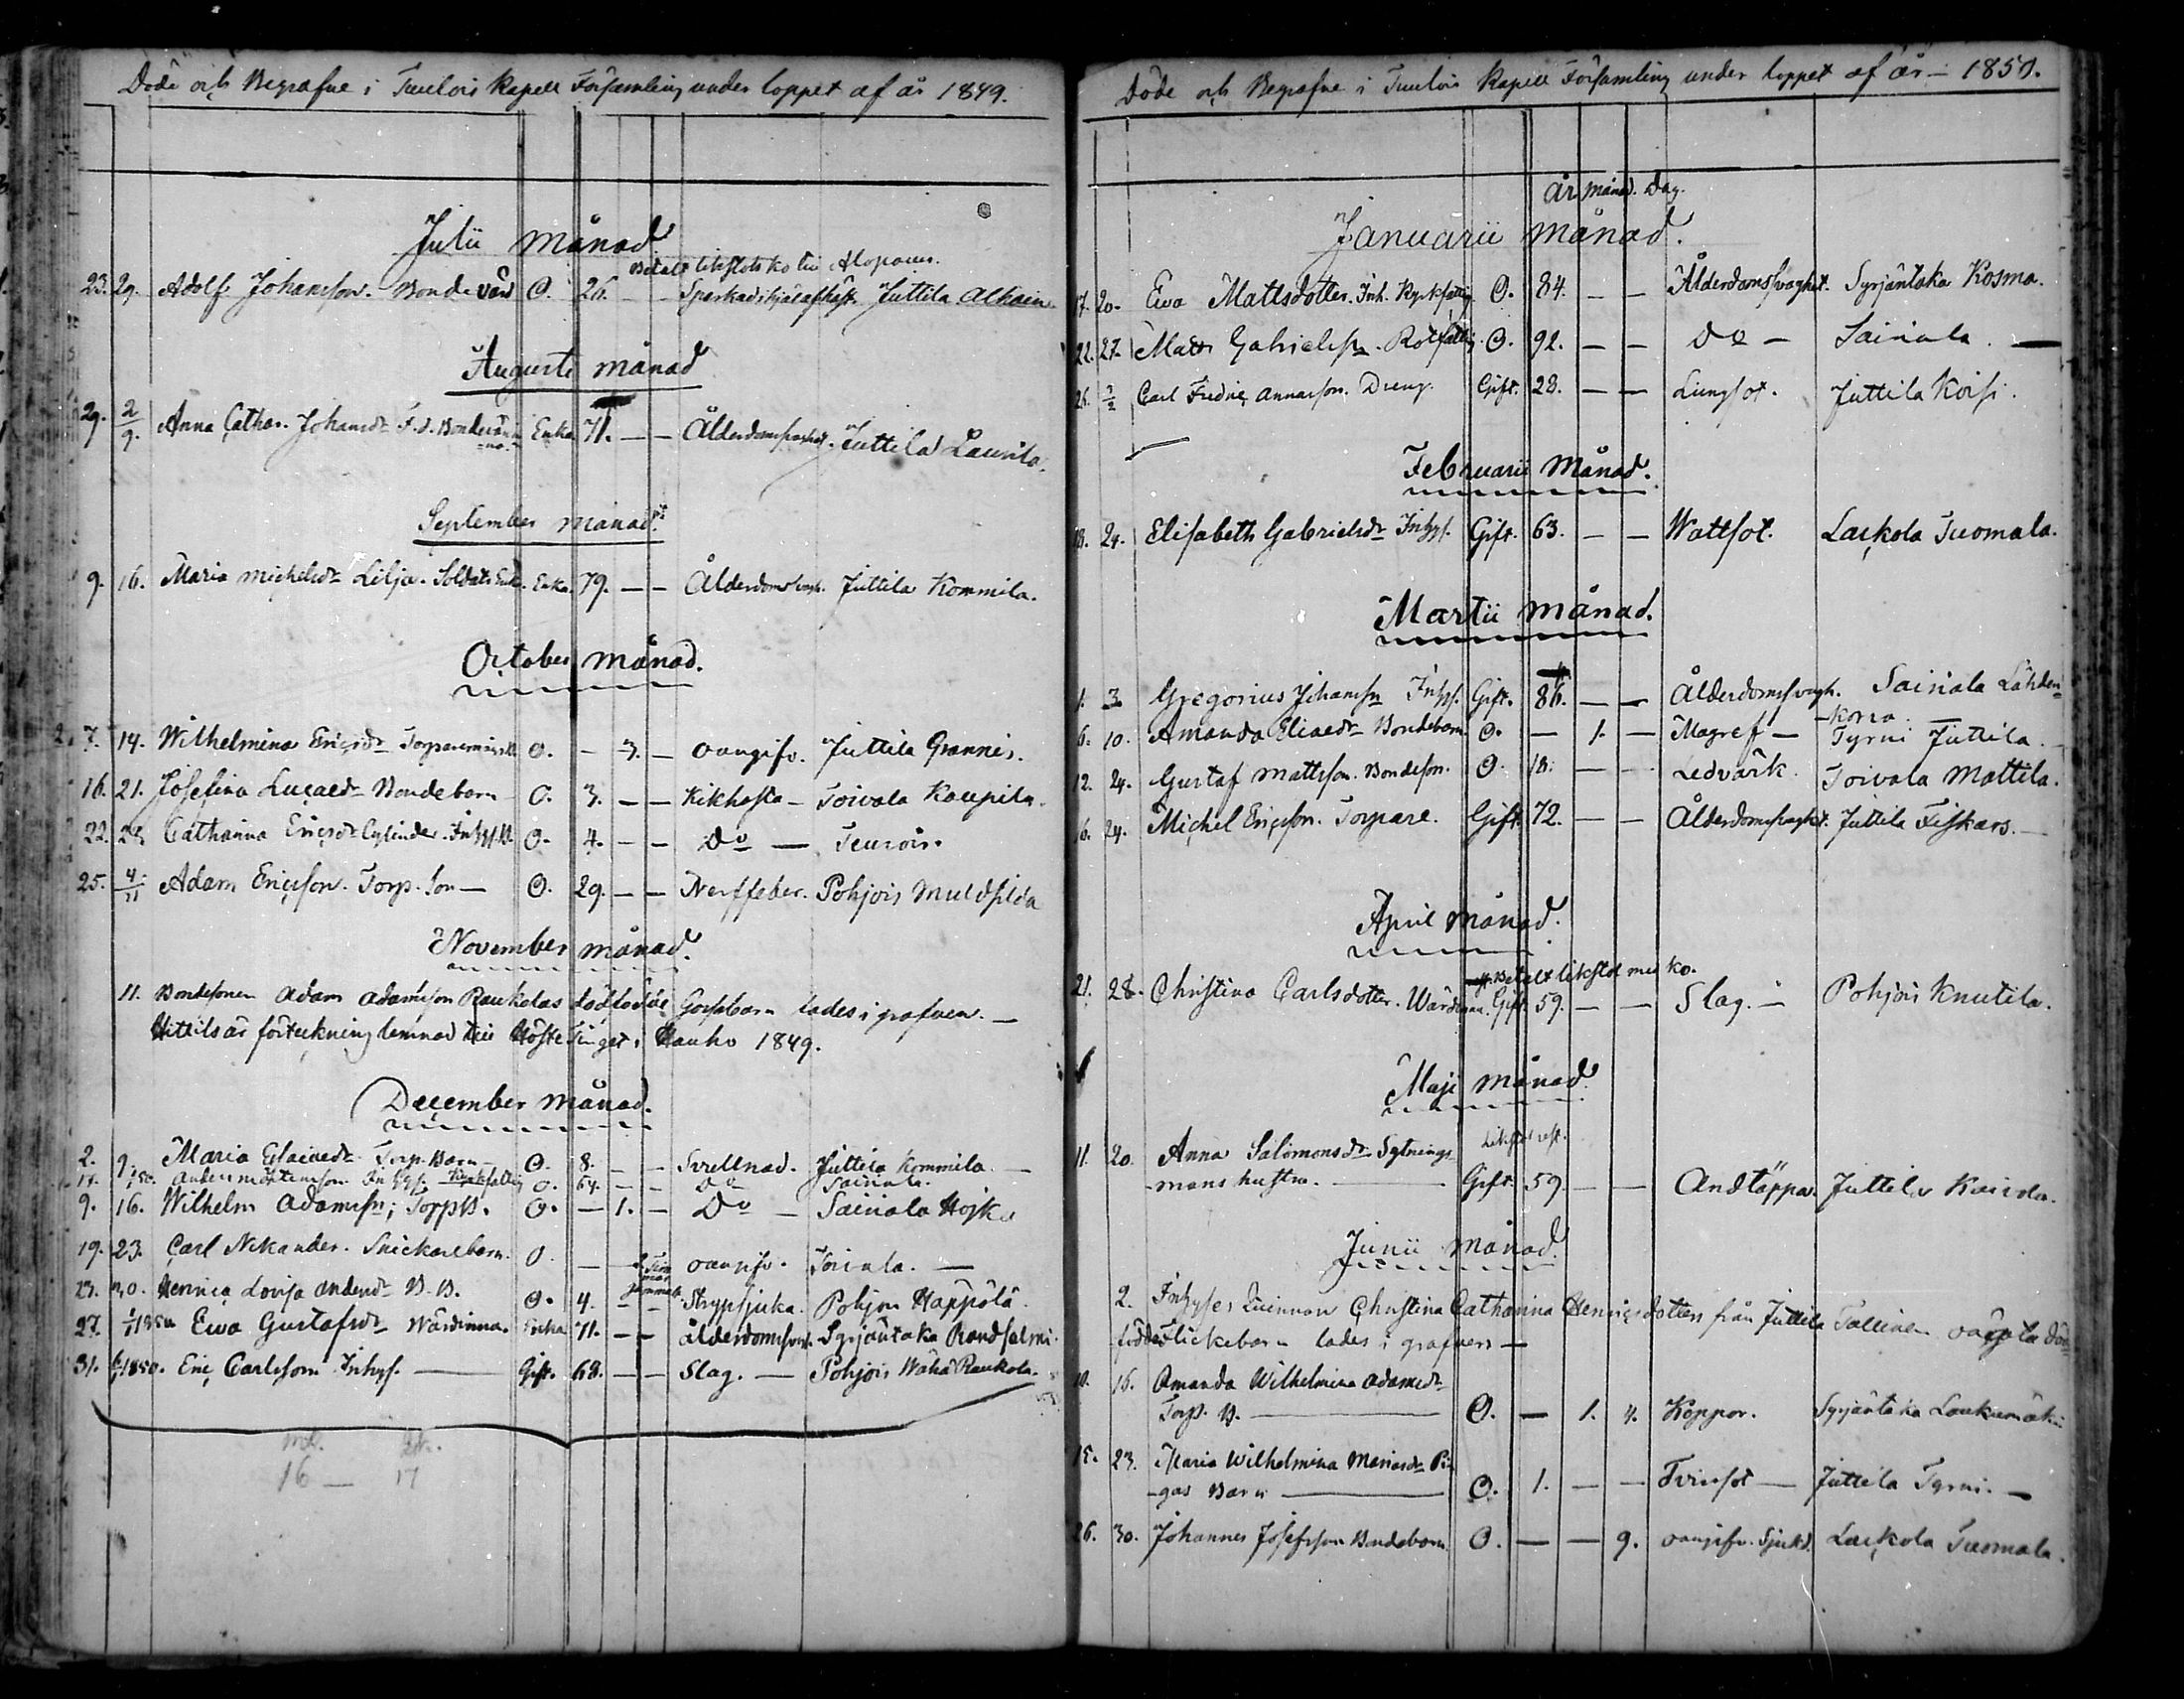 Döde och Begrafne i Tuulois Kapell Församling under loppet af år 1849.
Julii månad
Betalt likstols ko till Alopaeus.
23. 29. Adolf Johansson. Bonde O. 26. — — Juttila Alkain
Augusti månad
29. 2/9. Anna Cathar. Johansdr F.d. Bondevärdin Enka 71. — — Ålderdomsvaghet. Juttila Laurila.
-na.
September månad
9. 16. Maria Michelsdr Lilja. Soldats Enk. Enka. 79. — — Ålderdomsvagh. Juttila Kommila.
October månad.
7. 14. Wilhelmina Ericsdr O. — 3. — oangifv. Juttila Grannis.
16. 21. Josefina Lucaedr Bondebarn O. 3. — — Kikhosta — Toivala Kaupila.
22. 28. Catharina Ericsdr Cylinder. Inhys.B. O. 4. — — Do — Teurois.
25. 4/11 Adam Ericsson. Torp. Son — O. 29. — — Nerffeber. Pohjois Muldsilda
November månad.
11. Bondesonen Adam Adamsson Raukolas dödfödde Gossebarn lades i grafven. —
Hittils är förteckning lemnad till Höste Tinget i Hauho 1849.
December månad.
2. 9. Maria Torp. Barn — O. 8. — — Svullnad. Juttila Kommila. —
14. 1/50. Anders Mårtensson Inhys. Kyrkfattig O. 64. — — Do Sairiala.
9. 16. Wilhelm Adamssn; Torp B. O. — 1. — Do — Sairiala Hojka
19. 23. Carl Nikander. Snickare barn. O. — — oangifv. Toivala. —
23. 30. Henrica Lovisa Andersdr B.B. O. 4. — — Strypsjuka. Pohjois Häppölä
27. 1/1850 Ewa Gustafsdr Wärdinna. Enka 71. — — Ålderdomssvagh. Syrjäntaka Randsalmi.
31. 6/1 1850. Eric Carlsson Inhys. — Gift. 68. — — Slag. — Pohjois Wähä Raukola.
16 — 17
Döde och Begrafne i Tuulois Kapell Församling under loppet af år — 1850.
År månad. Dag.
Januarii månad.
17. 20. Ewa Mattsdotter. Inh. Kyrkfattig O. 84. — — Ålderdomssvaghet. Syrjäntaka Kosma.
22. 27. Matts Gabrielssn. Rotfattig. O. 92. — — Do — Sairiala. —
26. 3/2 Carl Fredric Annasson. Dreng. Gift. 28. — — Lungsot. Juttila Koisi.
Februarii Månad.
18. 24. Elisabeth Gabrielsdr Inhys. Gift. 63. — — Wattsot. Lackola Tuomala.
Martii månad.
1. 3. Gregorius Johanssn Inhys. Gift. 86. — — Ålderdomssvagh. Sairiala Lähden-
-korva.
6. 10. Amanda Eliaedr Bondebarn O. — 1. — Magref — Tyrni Juttila.
12. 24. Gustaf Mattsson. Bondeson. O. 18. — — Ledvärk. Toivala Mattila.
16. 24. Michel Ericsson. Torpare. Gift. 72. — — Ålderdomssvaghet. Juttila Fiskars. —
April månad.
Betalt likstol med ko.
21. 28. Christina Carlsdotter. Wärdinna. Gift. 59. — — Slag. — Pohjois Knutila.
Maji månad.
Likstol rest.
11. 20. Anna Salomonsdr Sytnings-
-mans hustru. — Gift. 59. — — Andtäppa. Juttila Kairola.
Junii månad.
2. Inhyses Qvinnan Christina Catharina Henricsdotters från Juttila Tallinen oägta död-
födde Flickebarn lades i grafven —
10. 16. Amanda Wilhelmina Adamsdr
Torp. B. — O. — 1. 4. Koppor. Syrjäntaka Laukamäki
15. 23. Maria Wilhelmina Mariasdr Pi-
-gas Barn — O. 1. — — Tvinsot — Juttila Tyrni. —
26. 30. Johannes Josefsson Bondebarn O. — — 9. oangifv. Sjukd. Lackola Tuomala.